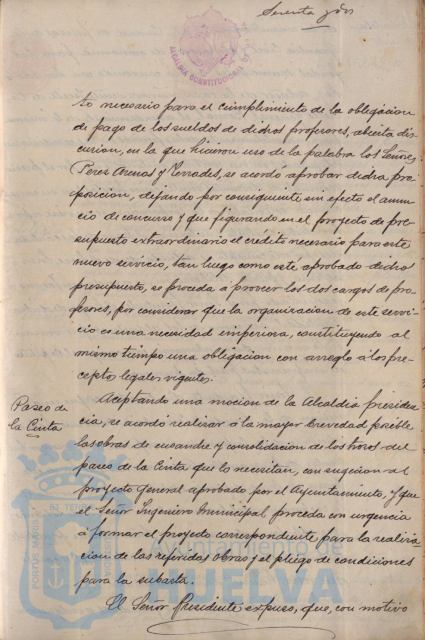 Sesenta y dos
ALCALDIA CONSTITUCIONAL DE
to necesario para el cumplimiento de la obligacion
de pago de los sueldos de dichos profesores, abierta dis-
cusion, en la que hicieron uso de la palabra los Señores
Perez Arenas y Terrades, se acordo aprobar dicha pro-
posicion, dejando por consiguiente sin efecto el anun-
cio de concurso y que figurando en el proyecto de pre-
supuesto extraordinario el crédito necesario para este
nuevo servicio, tan luego como esté aprobado dicho
presupuesto, se proceda a proveer los dos cargos de pro-
fesores, por considerar que la organizacion de este servi-
cio es una necesidad imperiosa, constituyendo al
mismo tiempo una obligacion con arreglo á los pre-
ceptos legales vigentes.
Paseo de
la Cinta
Aceptando una mocion de la Alcaldia Presiden-
cia, se acordó realizar á la mayor brevedad posible
las obras de ensanche y consolidacion de los trozos del
paseo de la Cinta que lo necesitan, con sugecion al
proyecto general aprobado por el Ayuntamiento, y que
el Señor Ingeniero municipal proceda con urgencia
á formar el proyecto correspondiente para la realiza-
cion de las referidas obras y el pliego de condiciones
para la subasta.
El Señor Presidente expuso, que, con motivo
PORTUS MARIS
Ayuntamiento de
HUELVA